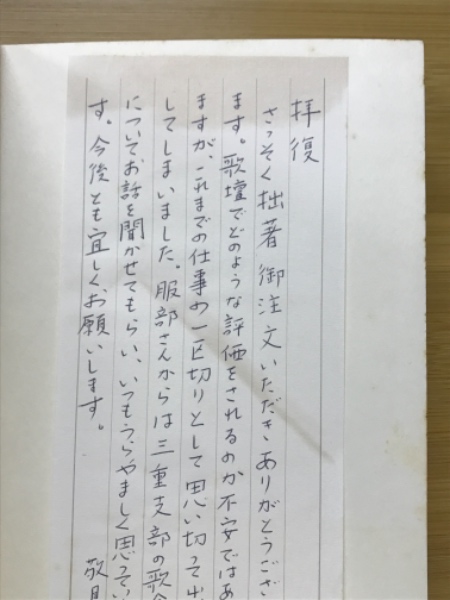 拝復
さっそく拙著御注文いただきありがとうござ
ます。歌壇でどのような評価をされるのか不安ではあ
ますが、これまでの仕事の一区切りとして思い切って出
してしまいました。服部さんからは三重支部の歌会
についてお話を聞かせてもらい、いつもうらやましく思ってい
す。今後とも宜しくお願いします。
敬具